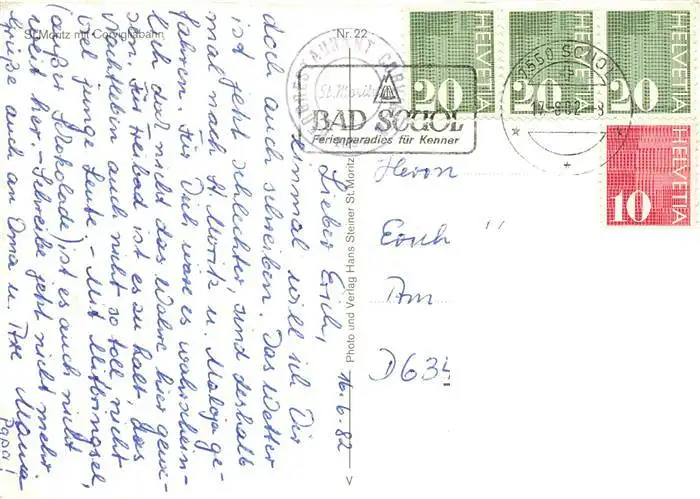 St. Moritz mit Corvigliabahn
Nr. 22
HELVETIA 20
HELVETIA 20
HELVETIA 20
HELVETIA 10
St. Moritz
BAD SCUOL
Ferienparadies für Kenner
7550 SCUOL
Photo und Verlag Hans Steiner St. Moritz
V
16.6.82
Lieber Erich,
einmal will ich Dir
doch auch schreiben. Das Wetter
ist jetzt schlechter, sind deshalb
mal nach St. Moritz u. Maloja ge-
fahren. Für Dich wäre es wahrschein-
lich das Wahre hier gewe-
sen. Für Freibad ist es zu kalt, das
Nachtleben auch nicht so toll, nicht
viel junge Leute. - Mit Mitbringsel,
(außer Schokolade) ist es auch nicht
weit her. - Schreibe jetzt nicht mehr.
Grüße auch an Oma u. Eure Mama
Papa!
Herrn
Erich
Am
D 634